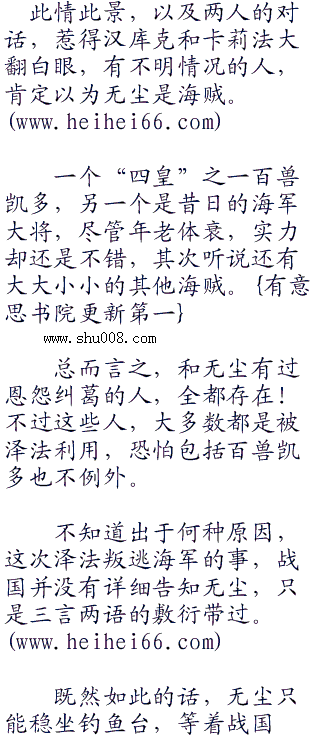 此情此景，以及两人的对
话，惹得汉库克和卡莉法大
翻白眼，有不明情况的人，
肯定以为无尘是海贼。
(www.heihei66.com)
一个“四皇”之一百兽
凯多，另一个是昔日的海军
大将，尽管年老体衰，实力
却还是不错，其次听说还有
大大小小的其他海贼。{有意
思书院更新第一}
www.shu008.com
总而言之，和无尘有过
恩怨纠葛的人，全都存在！
不过这些人，大多数都是被
泽法利用，恐怕包括百兽凯
多也不例外。
不知道出于何种原因，
这次泽法叛逃海军的事，战
国并没有详细告知无尘，只
是三言两语的敷衍带过。
(www.heihei66.com)
既然如此的话，无尘只
能稳坐钓鱼台，等着战国